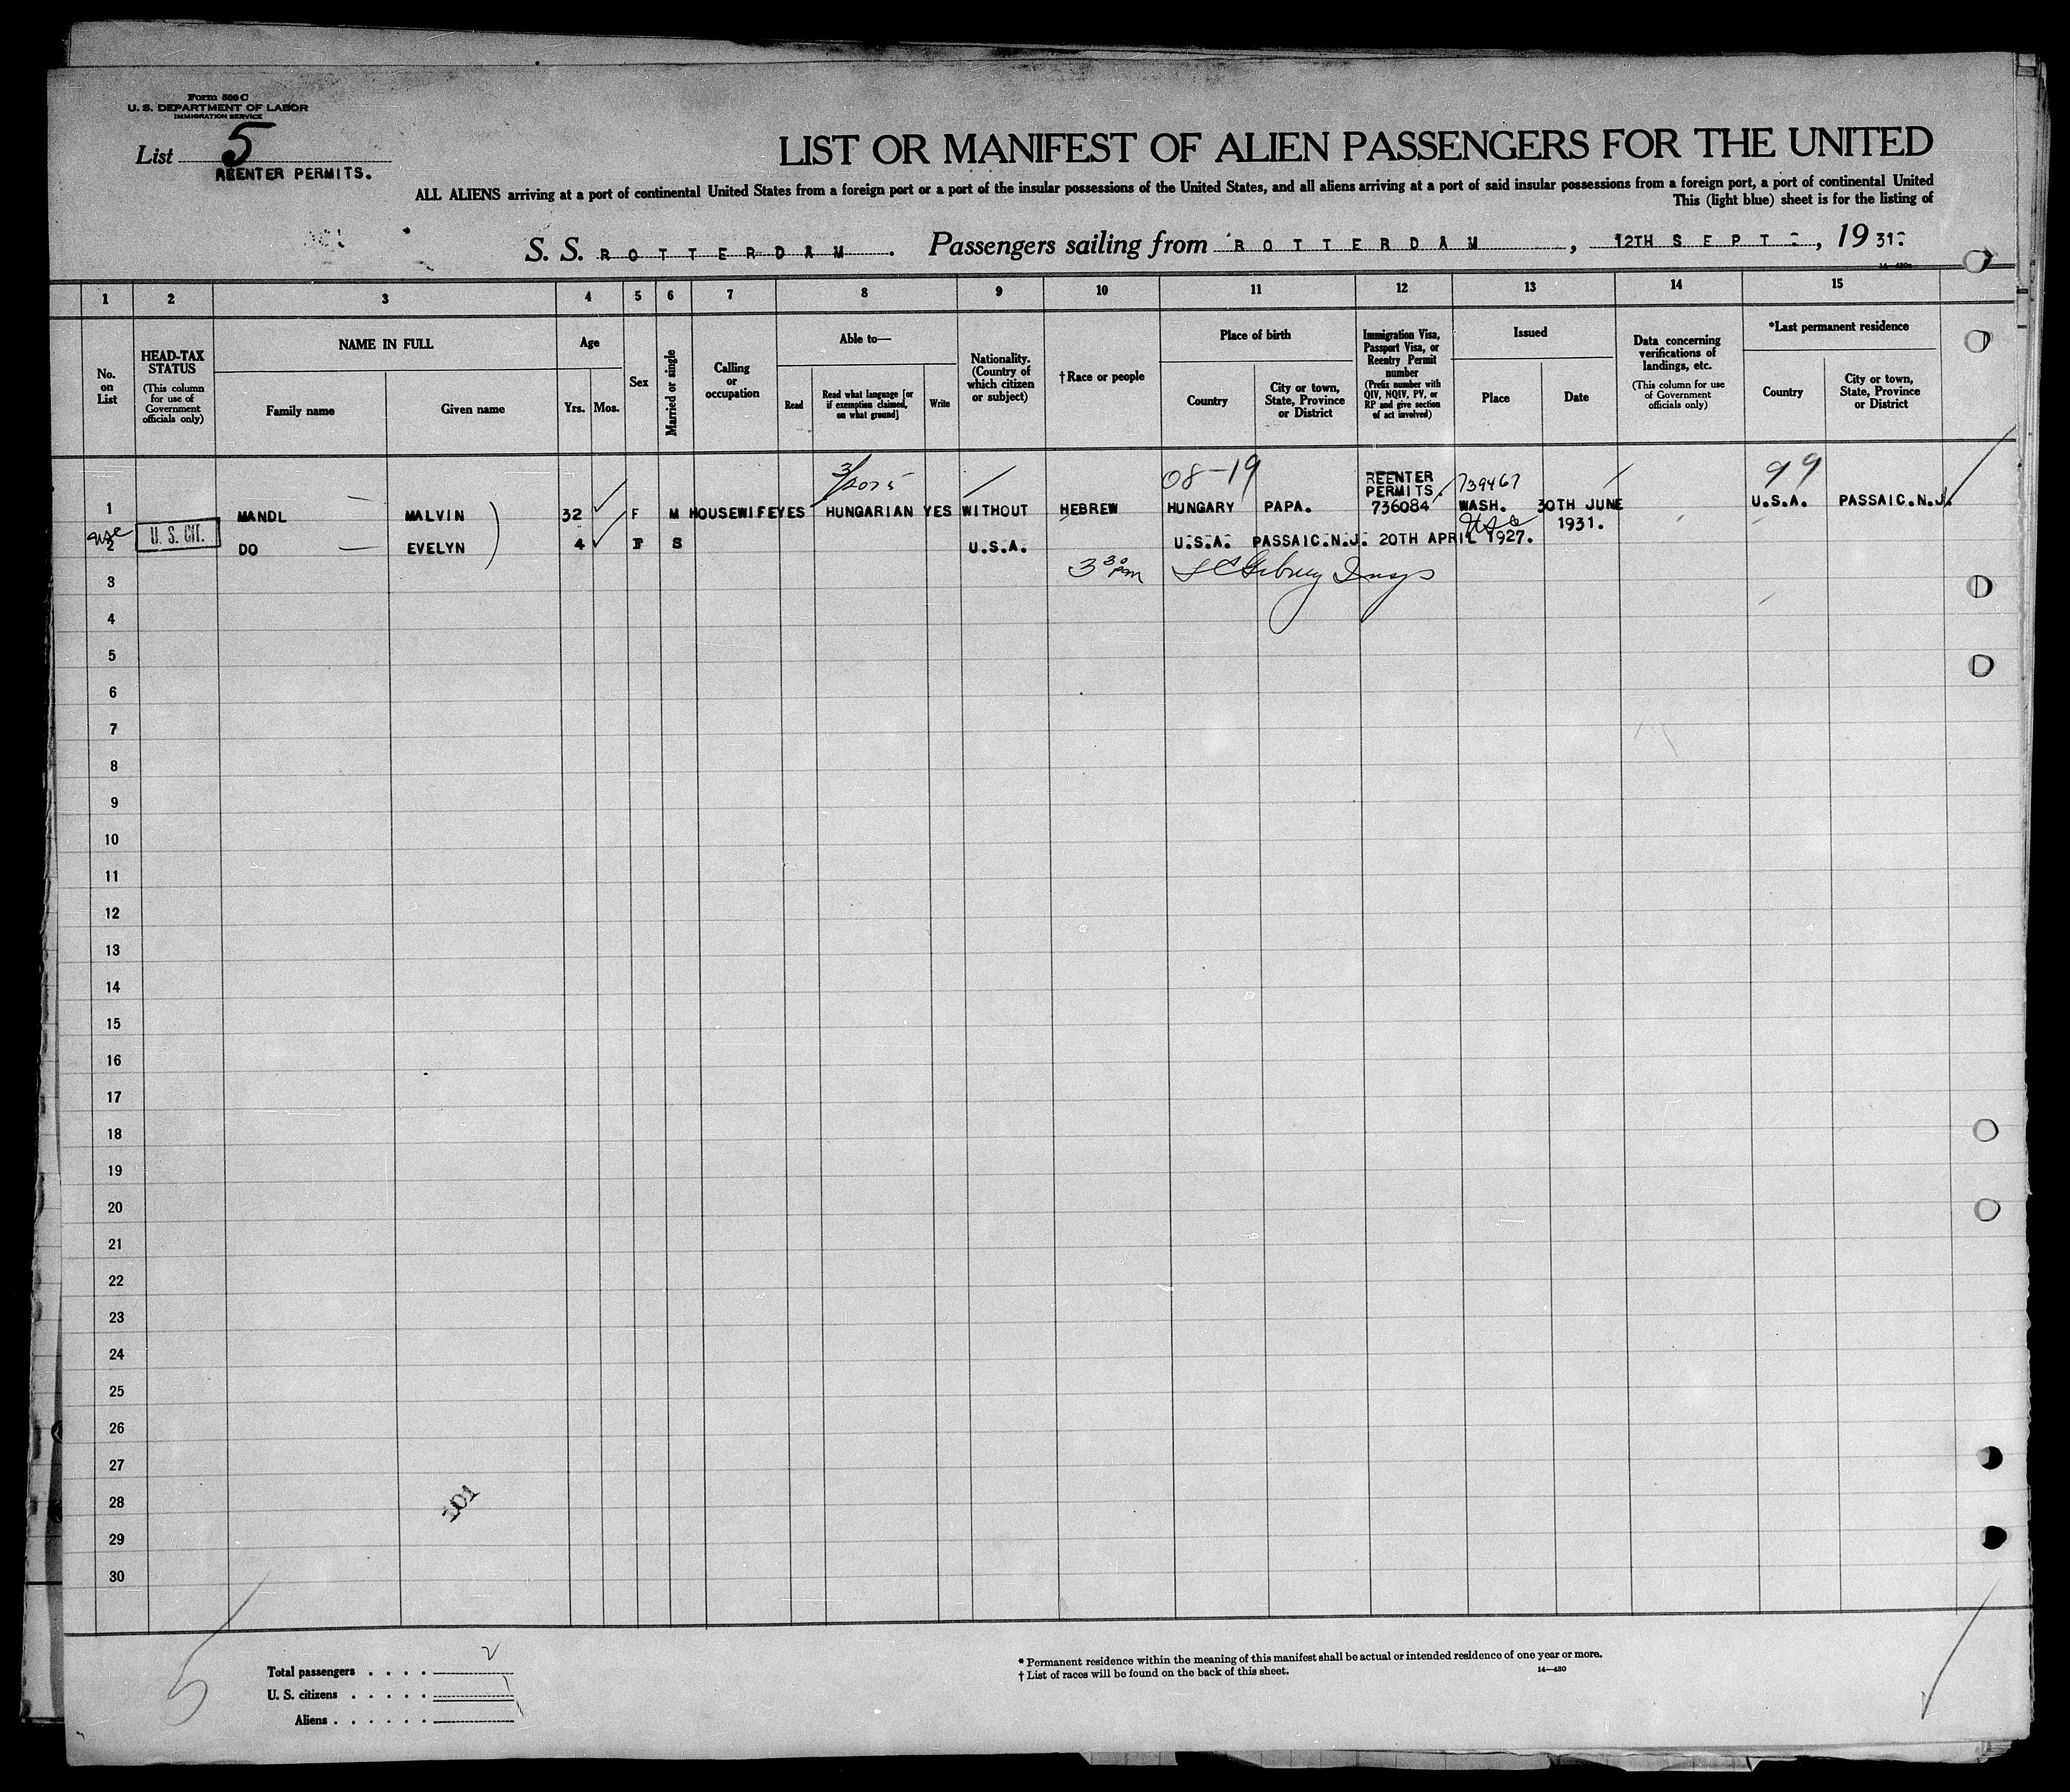 Form 500 C
U. S. DEPARTMENT OF LABOR
IMMIGRATION SERVICE
List 5
REENTER PERMITS.
LIST OR MANIFEST OF ALIEN PASSENGERS FOR THE UNITED
ALL ALIENS arriving at a port of continental United States from a foreign port or a port of the insular possessions of the United States, and all aliens arriving at a port of said insular possessions from a foreign port, a port of continental United
This (light blue) sheet is for the listing of
S. S. ROTTERDAM. Passengers sailing from ROTTERDAM, 12TH SEPT., 1931.
1 2 3 4 5 6 7 8 9 10 11 12 13 14 15
No. on List
HEAD-TAX STATUS
(This column for use of Government officials only)
NAME IN FULL
Family name
Given name
Age
Yrs. Mos.
Sex
Married or single
Calling or occupation
Able to—
Read
Read what language [or if exemption claimed, on what ground]
Write
Nationality. (Country of which citizen or subject)
†Race or people
Place of birth
Country
City or town, State, Province or District
Immigration Visa, Passport Visa, or Reentry Permit number
(Prefix number with QIV, NQIV, PV, or RP and give section of act involved)
Issued
Place
Date
Data concerning verifications of landings, etc.
(This column for use of Government officials only)
*Last permanent residence
Country
City or town, State, Province or District
08-19 REENTER PERMITS. 739467 99
1 MANDL MALVIN 32 F M HOUSEWIFE YES HUNGARIAN YES WITHOUT HEBREW HUNGARY PAPA. 736084 WASH. 30TH JUNE 1931. U.S.A. PASSAIC.N.J.
usc 2 U. S. CIT. DO EVELYN 4 F S U.S.A. U.S.A. PASSAIC.N.J. 20TH APRIL 1927.
3 3 30 pm
4
5
6
7
8
9
10
11
12
13
14
15
16
17
18
19
20
21
22
23
24
25
26
27
28
101
29
30
5
Total passengers . . . . 2
U. S. citizens . . . . . 1
Aliens . . . . . . 1
* Permanent residence within the meaning of this manifest shall be actual or intended residence of one year or more.
† List of races will be found on the back of this sheet. 14—430